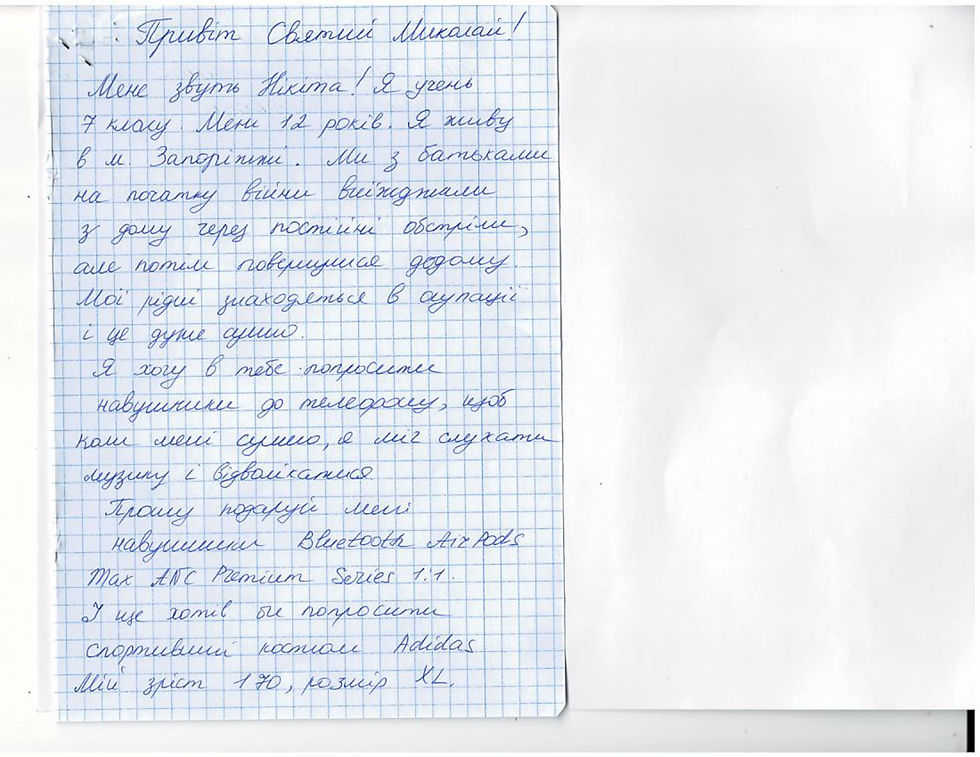 Привіт Святий Миколай!
Мене звуть Нікіта! Я учень
7 класу. Мені 12 років. Я живу
в м. Запоріжжі. Ми з батьками
на початку війни виїжджали
з дому через постійні обстріли,
але потім повернулися додому.
Мої рідні знаходяться в окупації
і це дуже сумно.
Я хочу в тебе попросити
навушники до телефону, щоб
коли мені сумно, я міг слухати
музику і відволікатися.
Прошу подаруй мені
навушники Bluetooth AirPods
Max ANC Premium Series 1:1.
І ще хотів би попросити
спортивний костюм Adidas
Мій зріст 170, розмір XL.